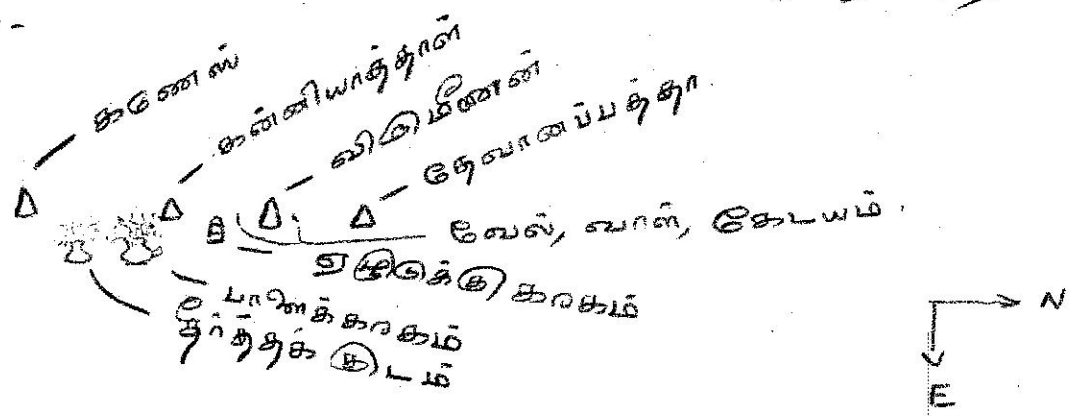 கணேஸ்
கன்னியாத்தாள்
விமிமீணன்
தேவானப்பத்தா
வேல், வாள், கேடயம்.
ஏழடுக்கு காகம்
பாணைக்காகம்
தீர்த்தக் குடம்
N
E